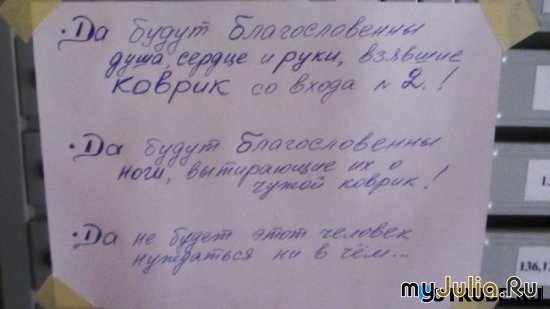 · Да будут благословенны
душа, сердце и руки, взявшие
коврик со входа № 2.!
· Да будут благословенны
ноги, вытирающие их о
чужой коврик!
· Да не будет этот человек
нуждаться ни в чём...
136,1
myJulia.Ru